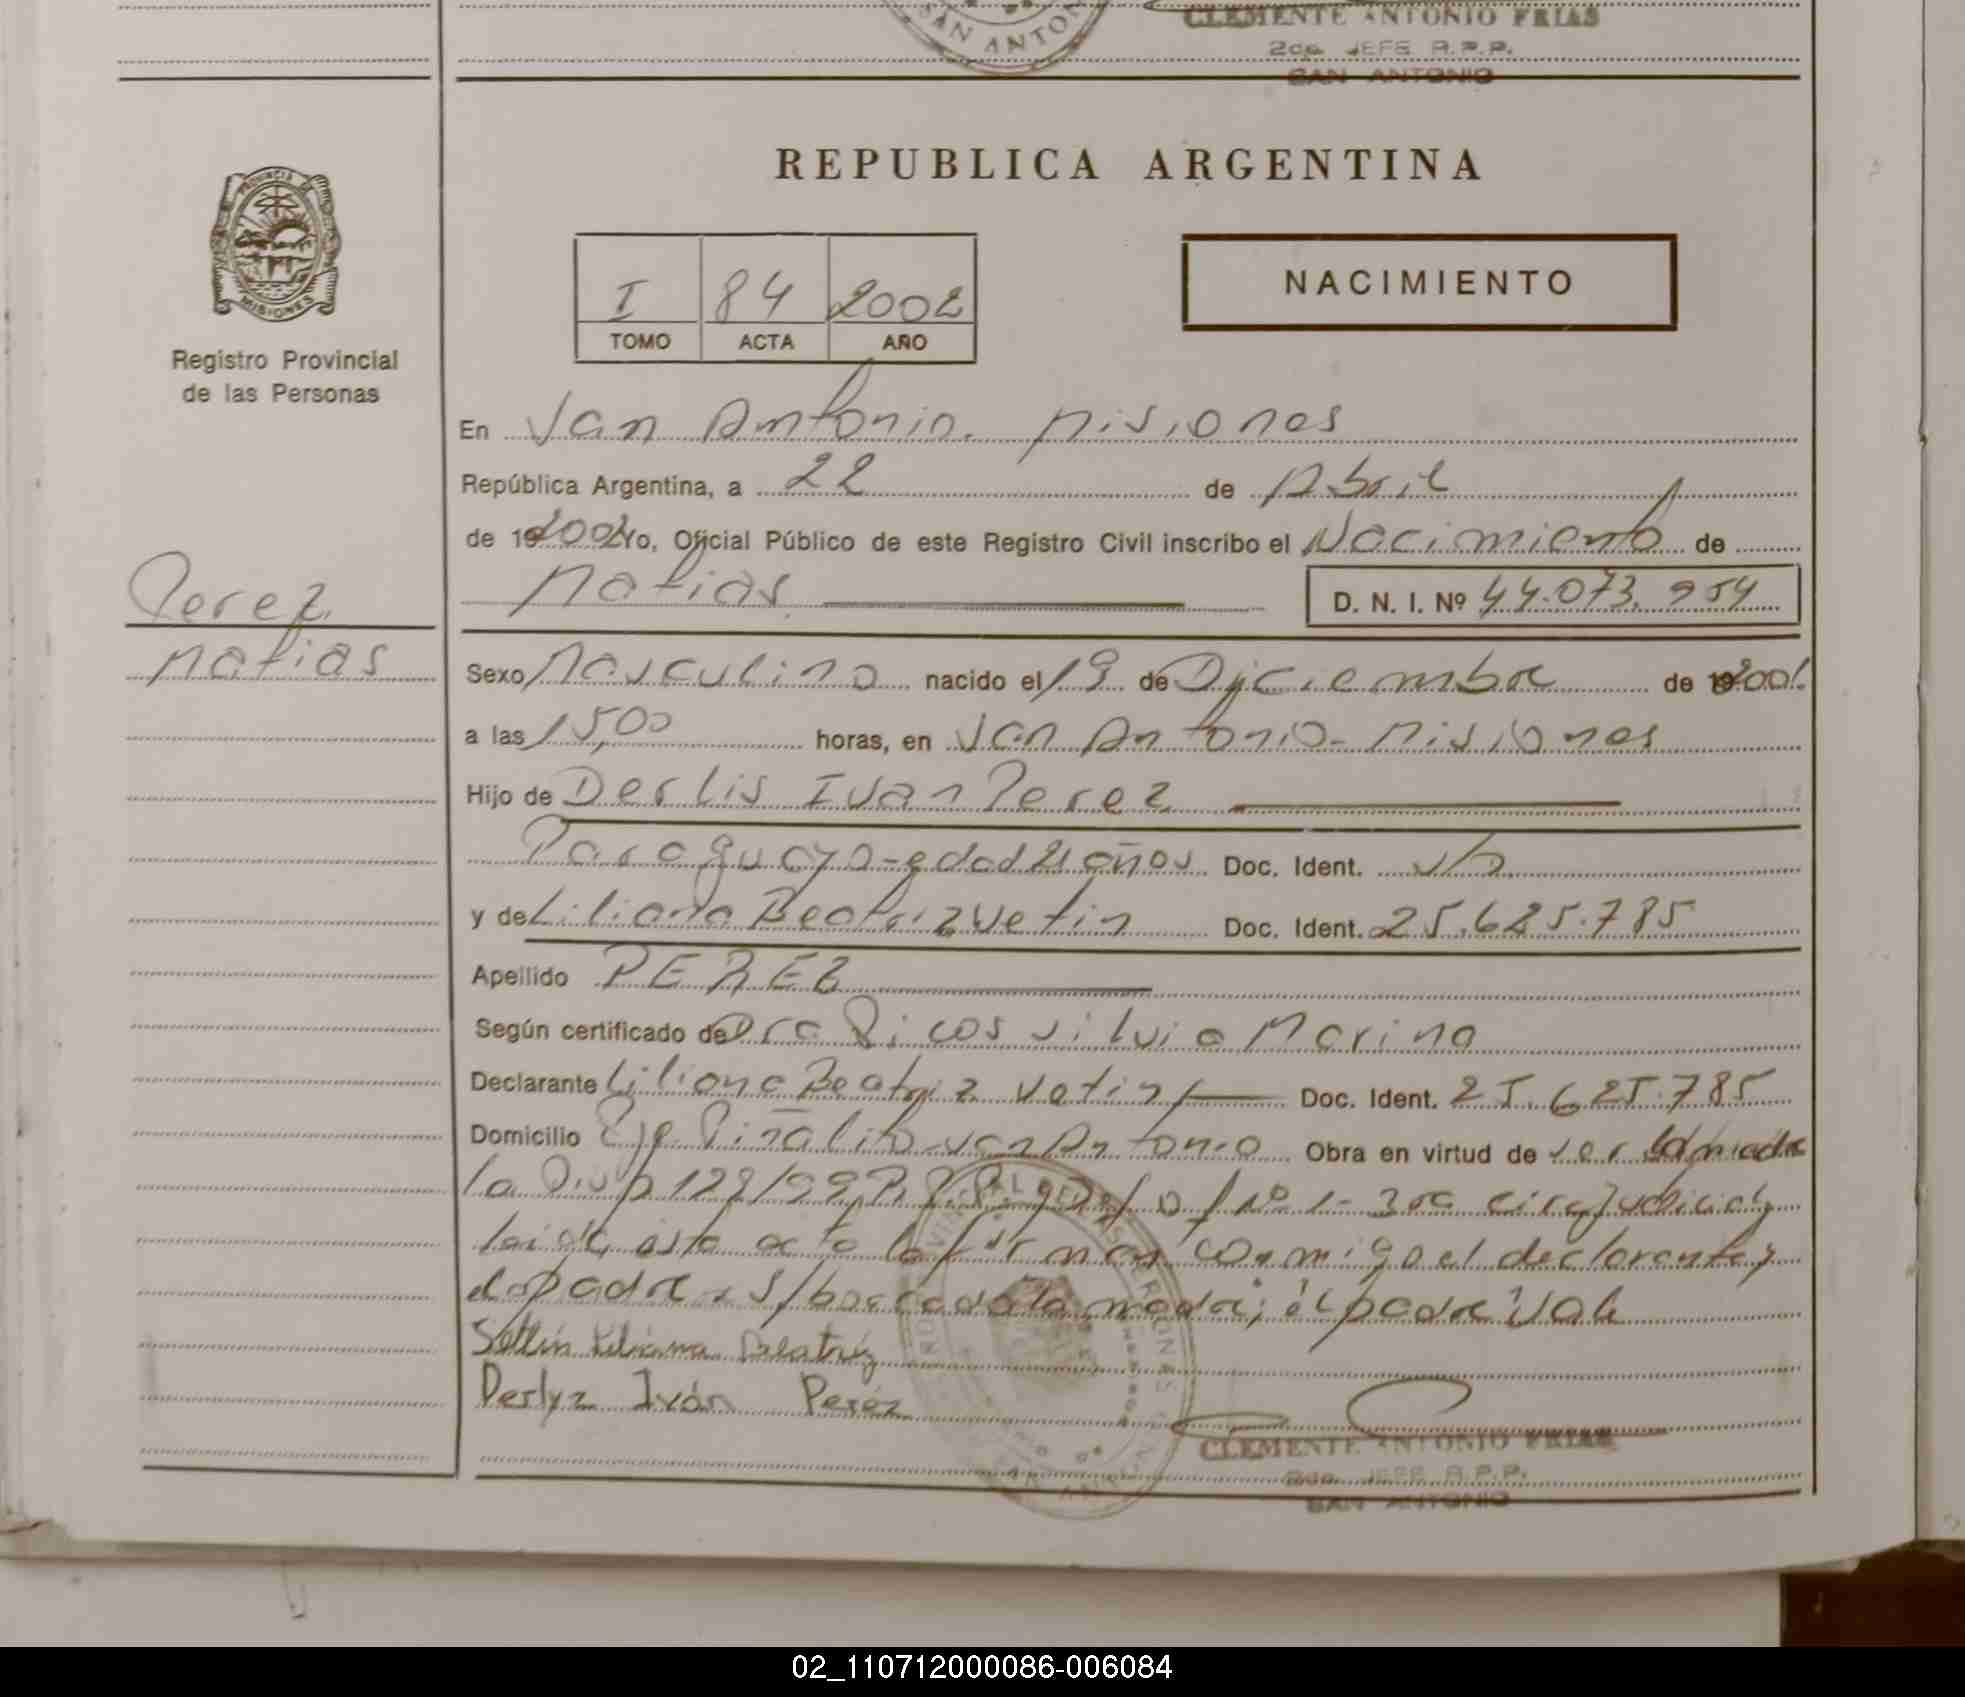 SAN ANTONIO
CLEMENTE ANTONIO FRIAS
2do. JEFE R.P.P.
SAN ANTONIO
PROVINCIA DE MISIONES
Registro Provincial
de las Personas
REPUBLICA ARGENTINA
I 84 2002
TOMO ACTA AÑO
NACIMIENTO
En San Antonio. Misiones
República Argentina, a 22 de Abril
de 19 2002 Yo, Oficial Público de este Registro Civil inscribo el Nacimiento de
Matias D. N. I. Nº 44.073.954
Perez
Matias
Sexo Masculino nacido el 19 de Diciembre de 19 2001.
a las 15,00 horas, en San Antonio - Misiones
Hijo de Derlis Ivan Perez
Paraguayo - edad 21 años Doc. Ident. s/n
y de Liliana Beatriz Vetin Doc. Ident. 25.625.785
Apellido PEREZ
Según certificado de Dra Ricos Silvia Marina
Declarante Liliana Beatriz Vetin Doc. Ident. 25.625.785
Domicilio Pje Piñalito - San Antonio Obra en virtud de ser la madre
la Disp 129/99 Nº 1 - 3ra circ Judicial y
leida esta acta la firman conmigo el declarante y
el padre S/borrado la madre; el padre Vale
Liliana Beatriz
Derlyz Iván Peréz
CLEMENTE ANTONIO FRIAS
2do. JEFE R.P.P.
SAN ANTONIO
02_110712000086-006084